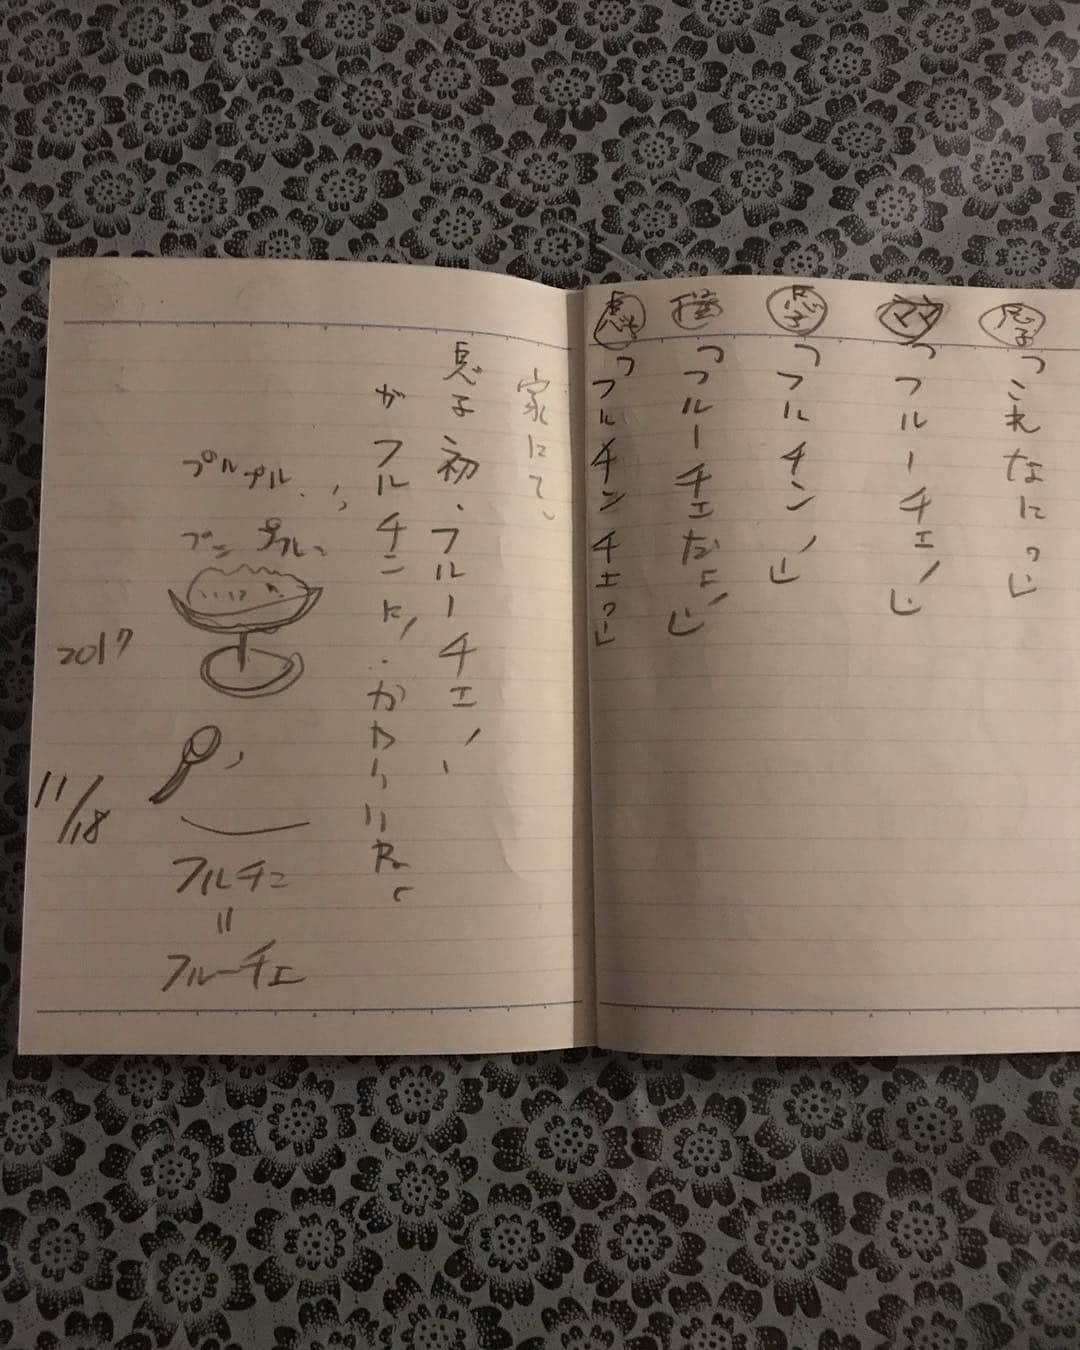 息子「これなに？」
ママ「フルーチェ！」
息子「フルチン！」
「フルーチェだよ！」
息子「フルチンチェ？」
家にて、
息子初・フルーチェ！
がフルチンに！
プルプル
プルン
2017
11/18
フルチン
=
フルーチェ